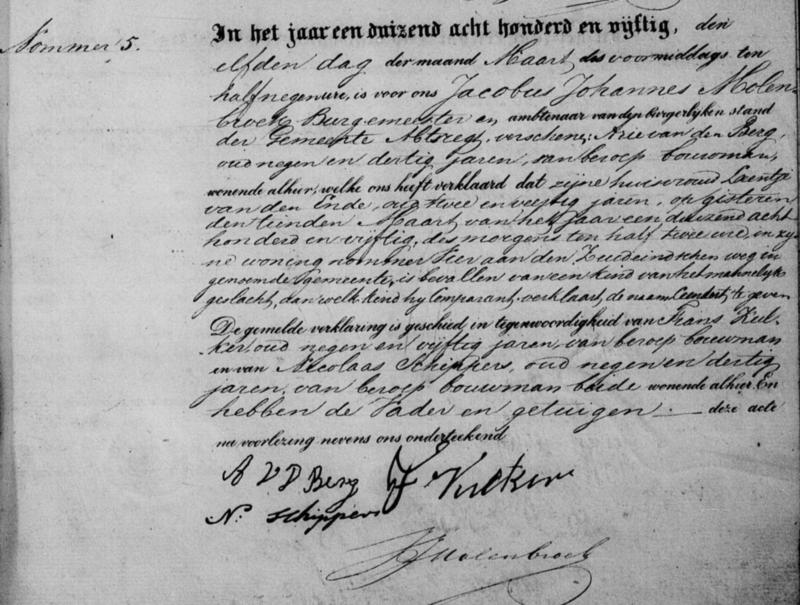 Nommer 5.
In het jaar een duizend acht honderd en vijftig, den
elfden dag der maand Maart, des voormiddags ten
half negen ure, is voor ons Jacobus Johannes Molen-
broek Burgemeester en ambtenaar van den Burgerlyken stand
der Gemeente Abtsregt, verschenen Arie van den Berg,
oud negen en dertig jaren, van beroep bouwman,
wonende alhier, welke ons heeft verklaard dat zijne huisvrouw Leentje
van den Ende, oud twee en veertig jaren, op gisteren
den tienden Maart van het jaar een duizend acht
honderd en vijftig, des morgens ten half twee ure, in zy-
ne woning nommer vier aan den Zuideindschen weg in
genoemde gemeente, is bevallen van een kind van het mannelyk
geslacht, aan welk kind hy Comparant verklaart, de naam Leendert, te geven
De gemelde verklaring is geschied in tegenwoordigheid van Frans
oud negen en vijftig jaren, van beroep bouwman
en van Nicolaas Schippers, oud negen en dertig
jaren, van beroep bouwman beide wonende alhier. En
hebben de Vader en getuigen deze acte
na voorlezing nevens ons onderteekend
A V D Berg F
N. Schippers
JJ Molenbroek